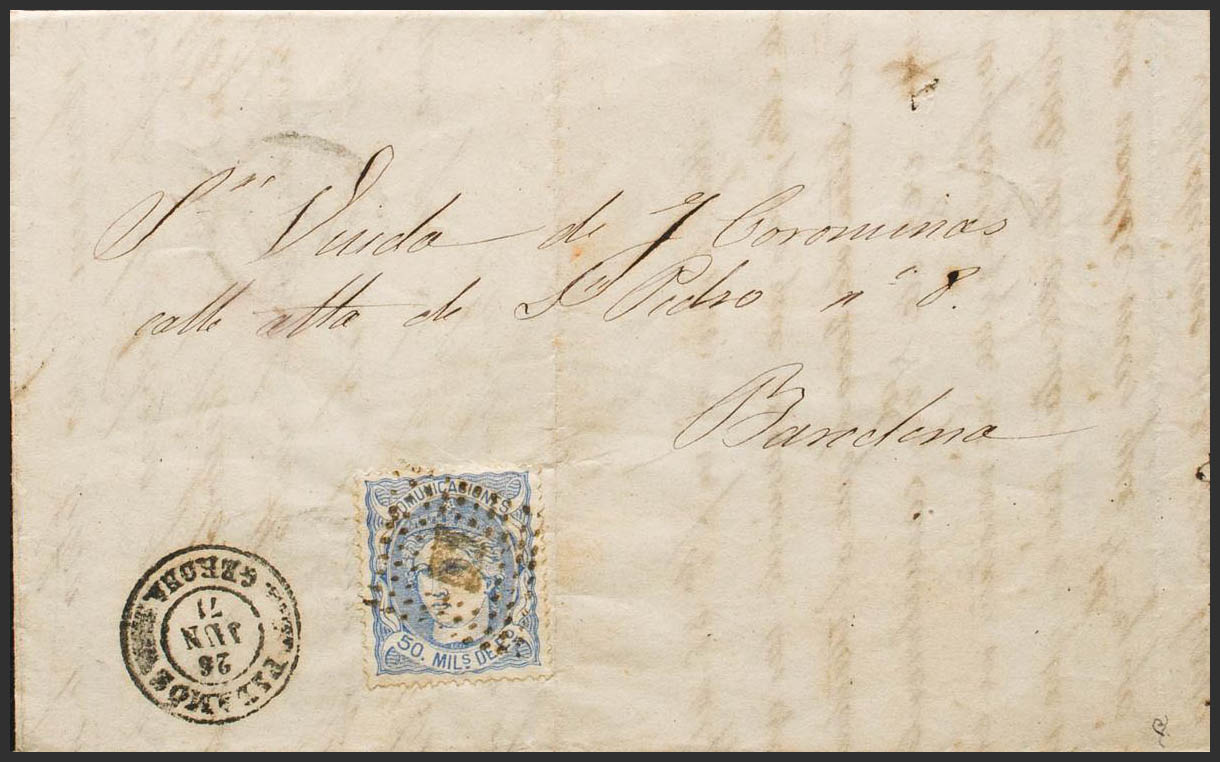 Sra Viuda de J Corominas
calle alta de Sn Pedro nº 8.
Barcelona
COMUNICACIONES
50. MILS DE E
PALAMOS
28
JUN
71
GERONA